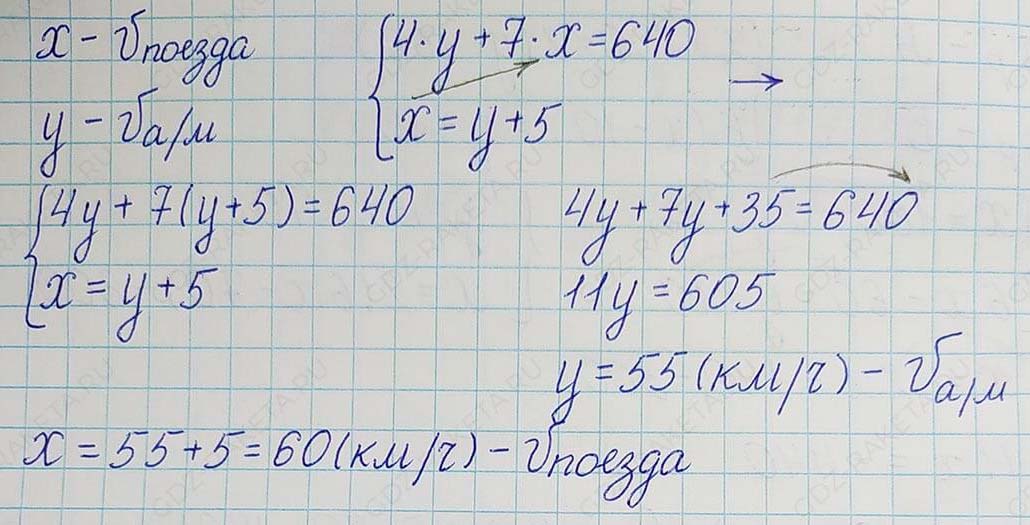 x - v поезда
y - v а/м
{4·y + 7·x = 640
x = y + 5 →
{4y + 7(y+5) = 640
x = y + 5
4y + 7y + 35 = 640
11y = 605
y = 55 (км/ч) - v а/м
x = 55 + 5 = 60 (км/ч) - v поезда
GDZ-RAKETA.RU